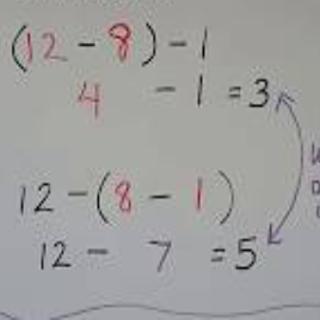 (12 - 8) - 1
4 - 1 = 3
12 - (8 - 1)
12 - 7 = 5